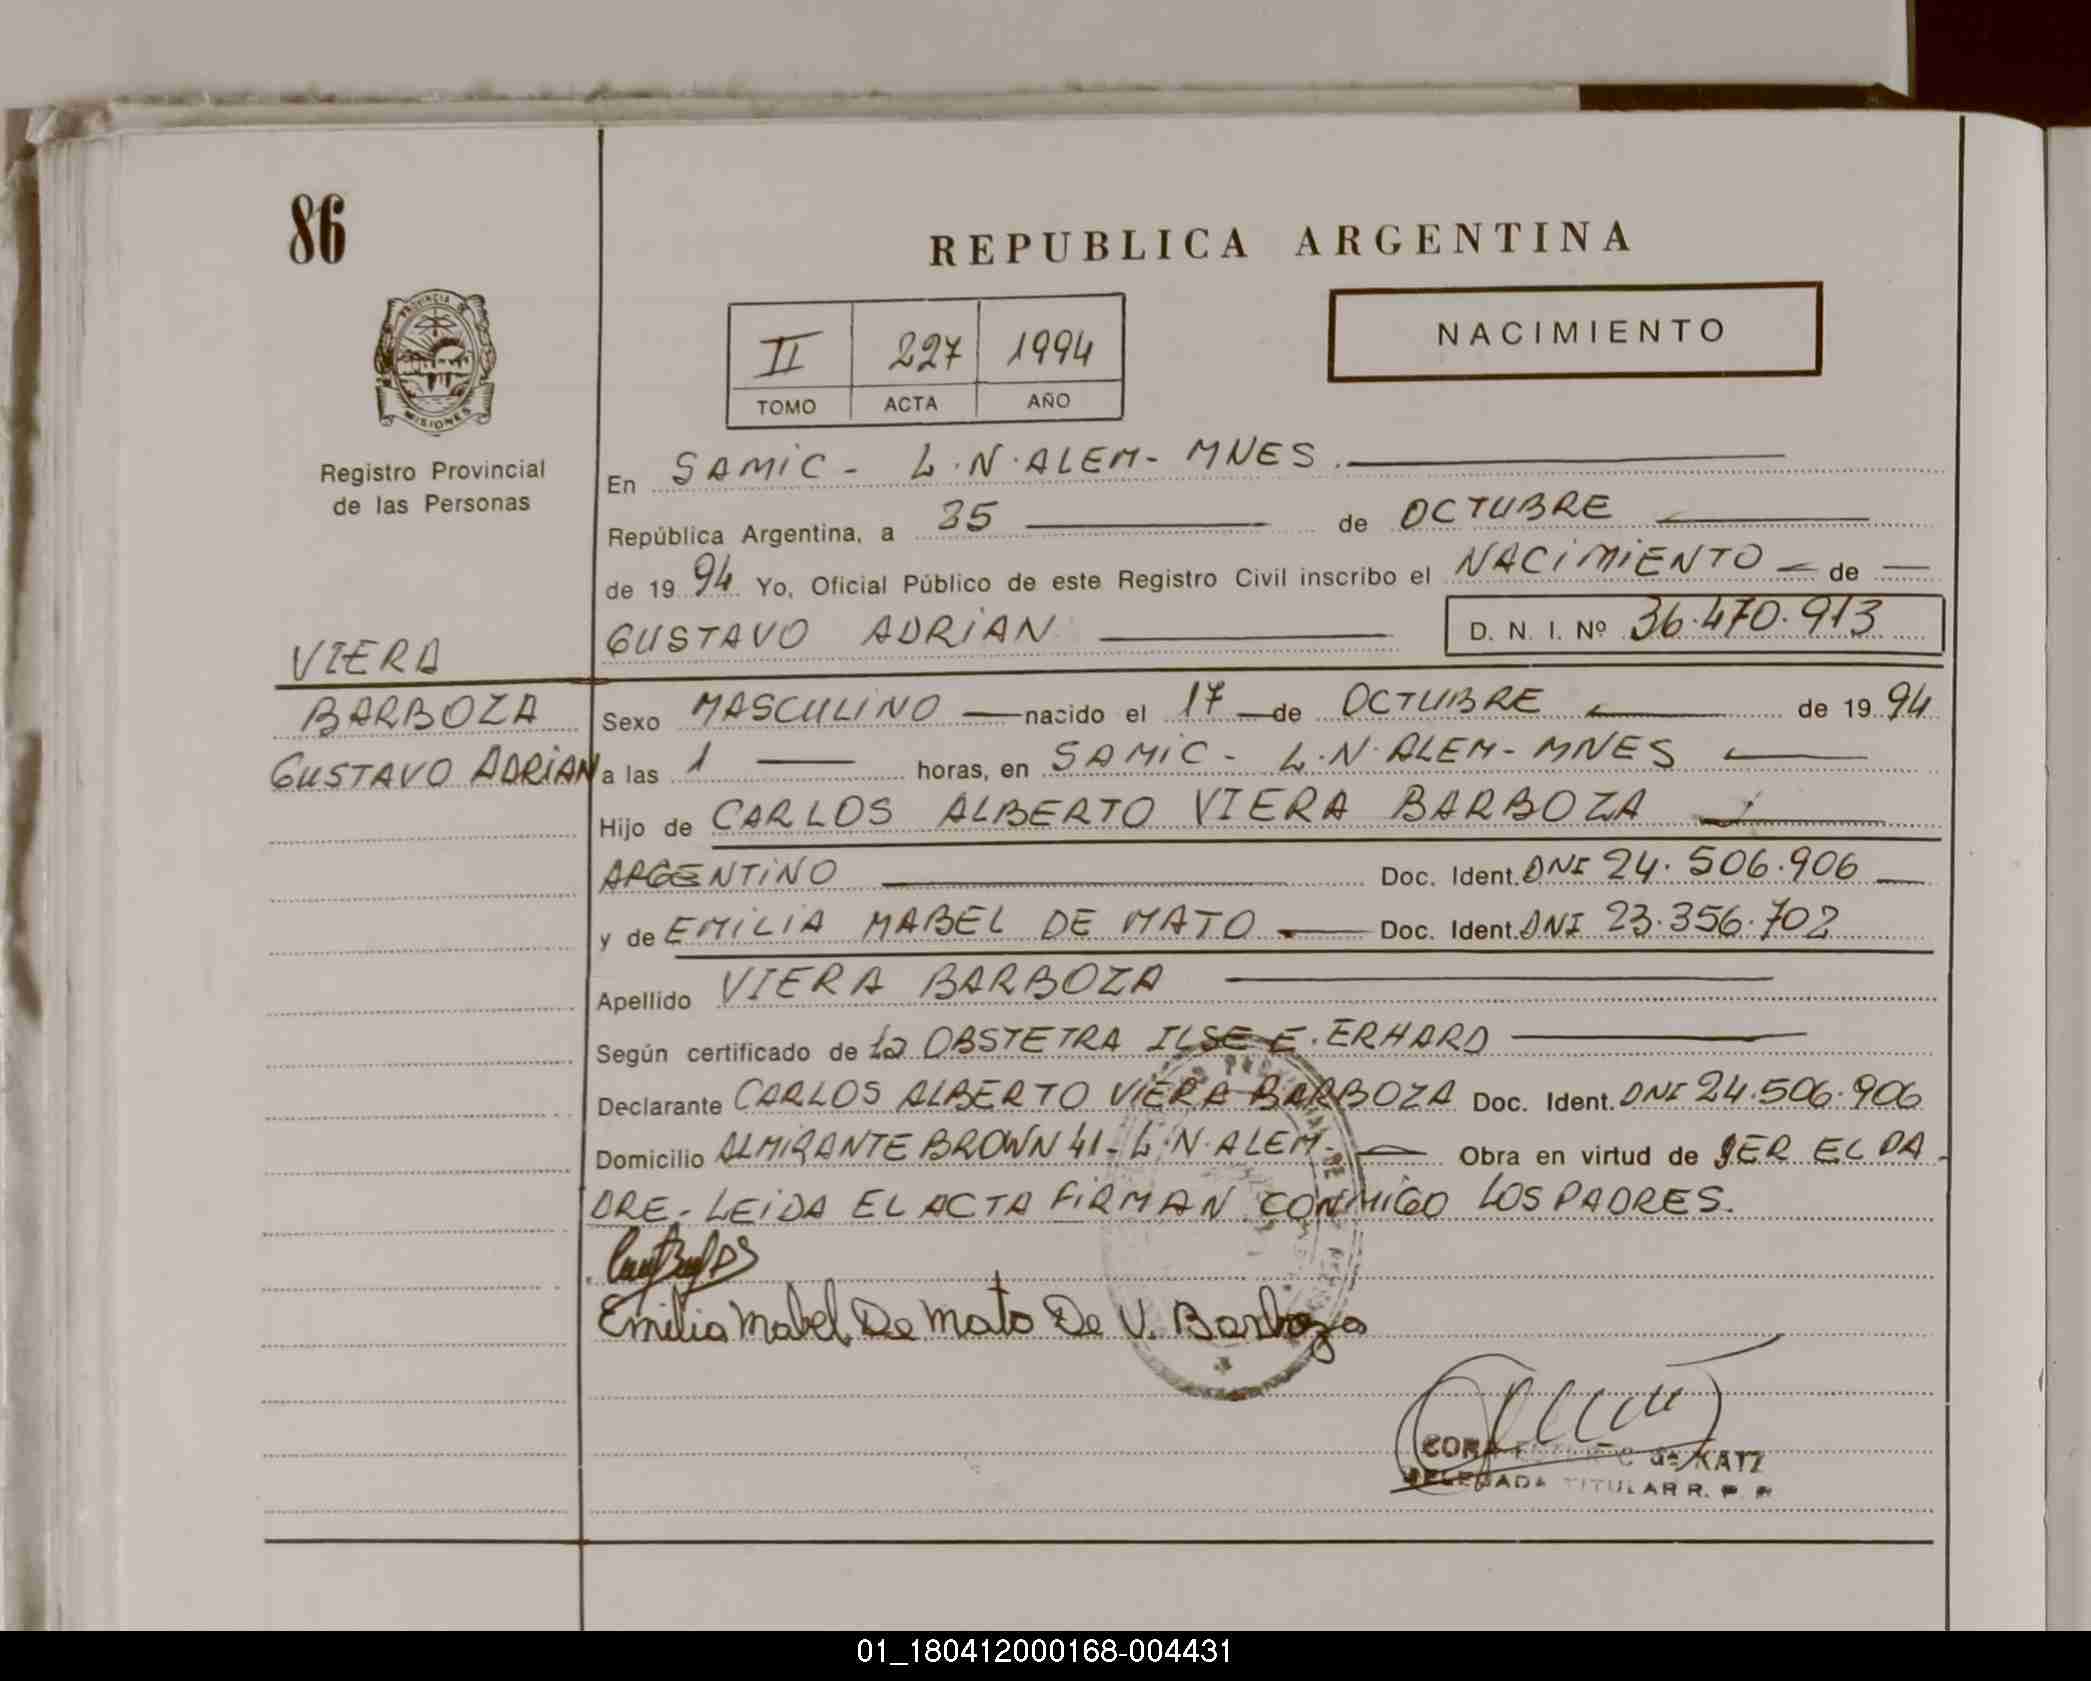 86
REPUBLICA ARGENTINA
PROVINCIA DE
MISIONES
Registro Provincial
de las Personas
II 227 1994
TOMO ACTA AÑO
NACIMIENTO
En SAMIC - L.N.ALEM - MNES.
República Argentina, a 25 de OCTUBRE
de 19 94 Yo, Oficial Público de este Registro Civil inscribo el NACIMIENTO de
GUSTAVO ADRIAN D. N. I. Nº 36.470.913
VIERA
BARBOZA
GUSTAVO ADRIAN
Sexo MASCULINO nacido el 17 de OCTUBRE de 19 94
a las 1 horas, en SAMIC - L.N.ALEM - MNES
Hijo de CARLOS ALBERTO VIERA BARBOZA
ARGENTINO Doc. Ident. DNI 24.506.906
y de EMILIA MABEL DE MATO Doc. Ident. DNI 23.356.702
Apellido VIERA BARBOZA
Según certificado de la OBSTETRA ILSE E. ERHARD
Declarante CARLOS ALBERTO VIERA BARBOZA Doc. Ident. DNI 24.506.906
Domicilio ALMIRANTE BROWN 41 - L.N.ALEM - Obra en virtud de SER EL PA-
DRE - LEIDA EL ACTA FIRMAN CONMIGO LOS PADRES.
Emilia Mabel De Mato De V. Barboza
CORA de KATZ
DELEGADA TITULAR R. P. P.
01_180412000168-004431